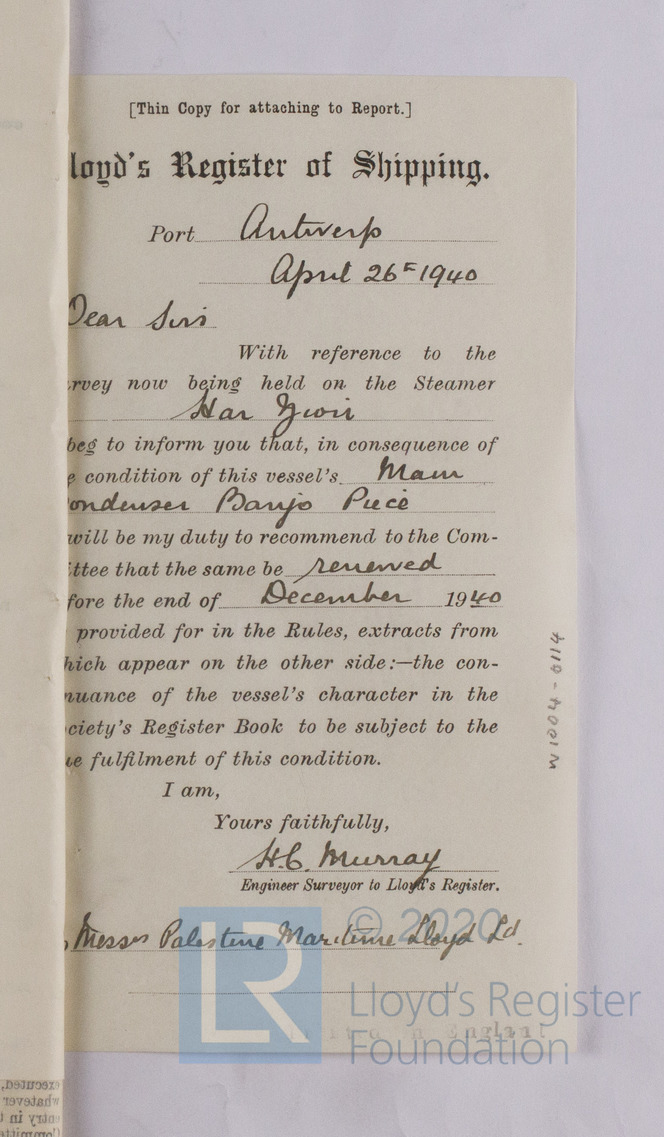 [Thin Copy for attaching to Report.]
loyd's Register of Shipping.
Port Antwerp
April 26th 1940
Dear Sirs
With reference to the
rvey now being held on the Steamer
Har Zion
beg to inform you that, in consequence of
e condition of this vessel's Main
ondenser Banjo Piece
will be my duty to recommend to the Com-
ittee that the same be renewed
fore the end of December 1940
provided for in the Rules, extracts from
hich appear on the other side:—the con-
nuance of the vessel's character in the
ciety's Register Book to be subject to the
ue fulfilment of this condition.
I am,
Yours faithfully,
H.C. Murray
Engineer Surveyor to Lloyd's Register.
Messrs Palestine Maritime Lloyd Ld.
W1004-0114
© 2020
LR
Lloyd's Register
Foundation